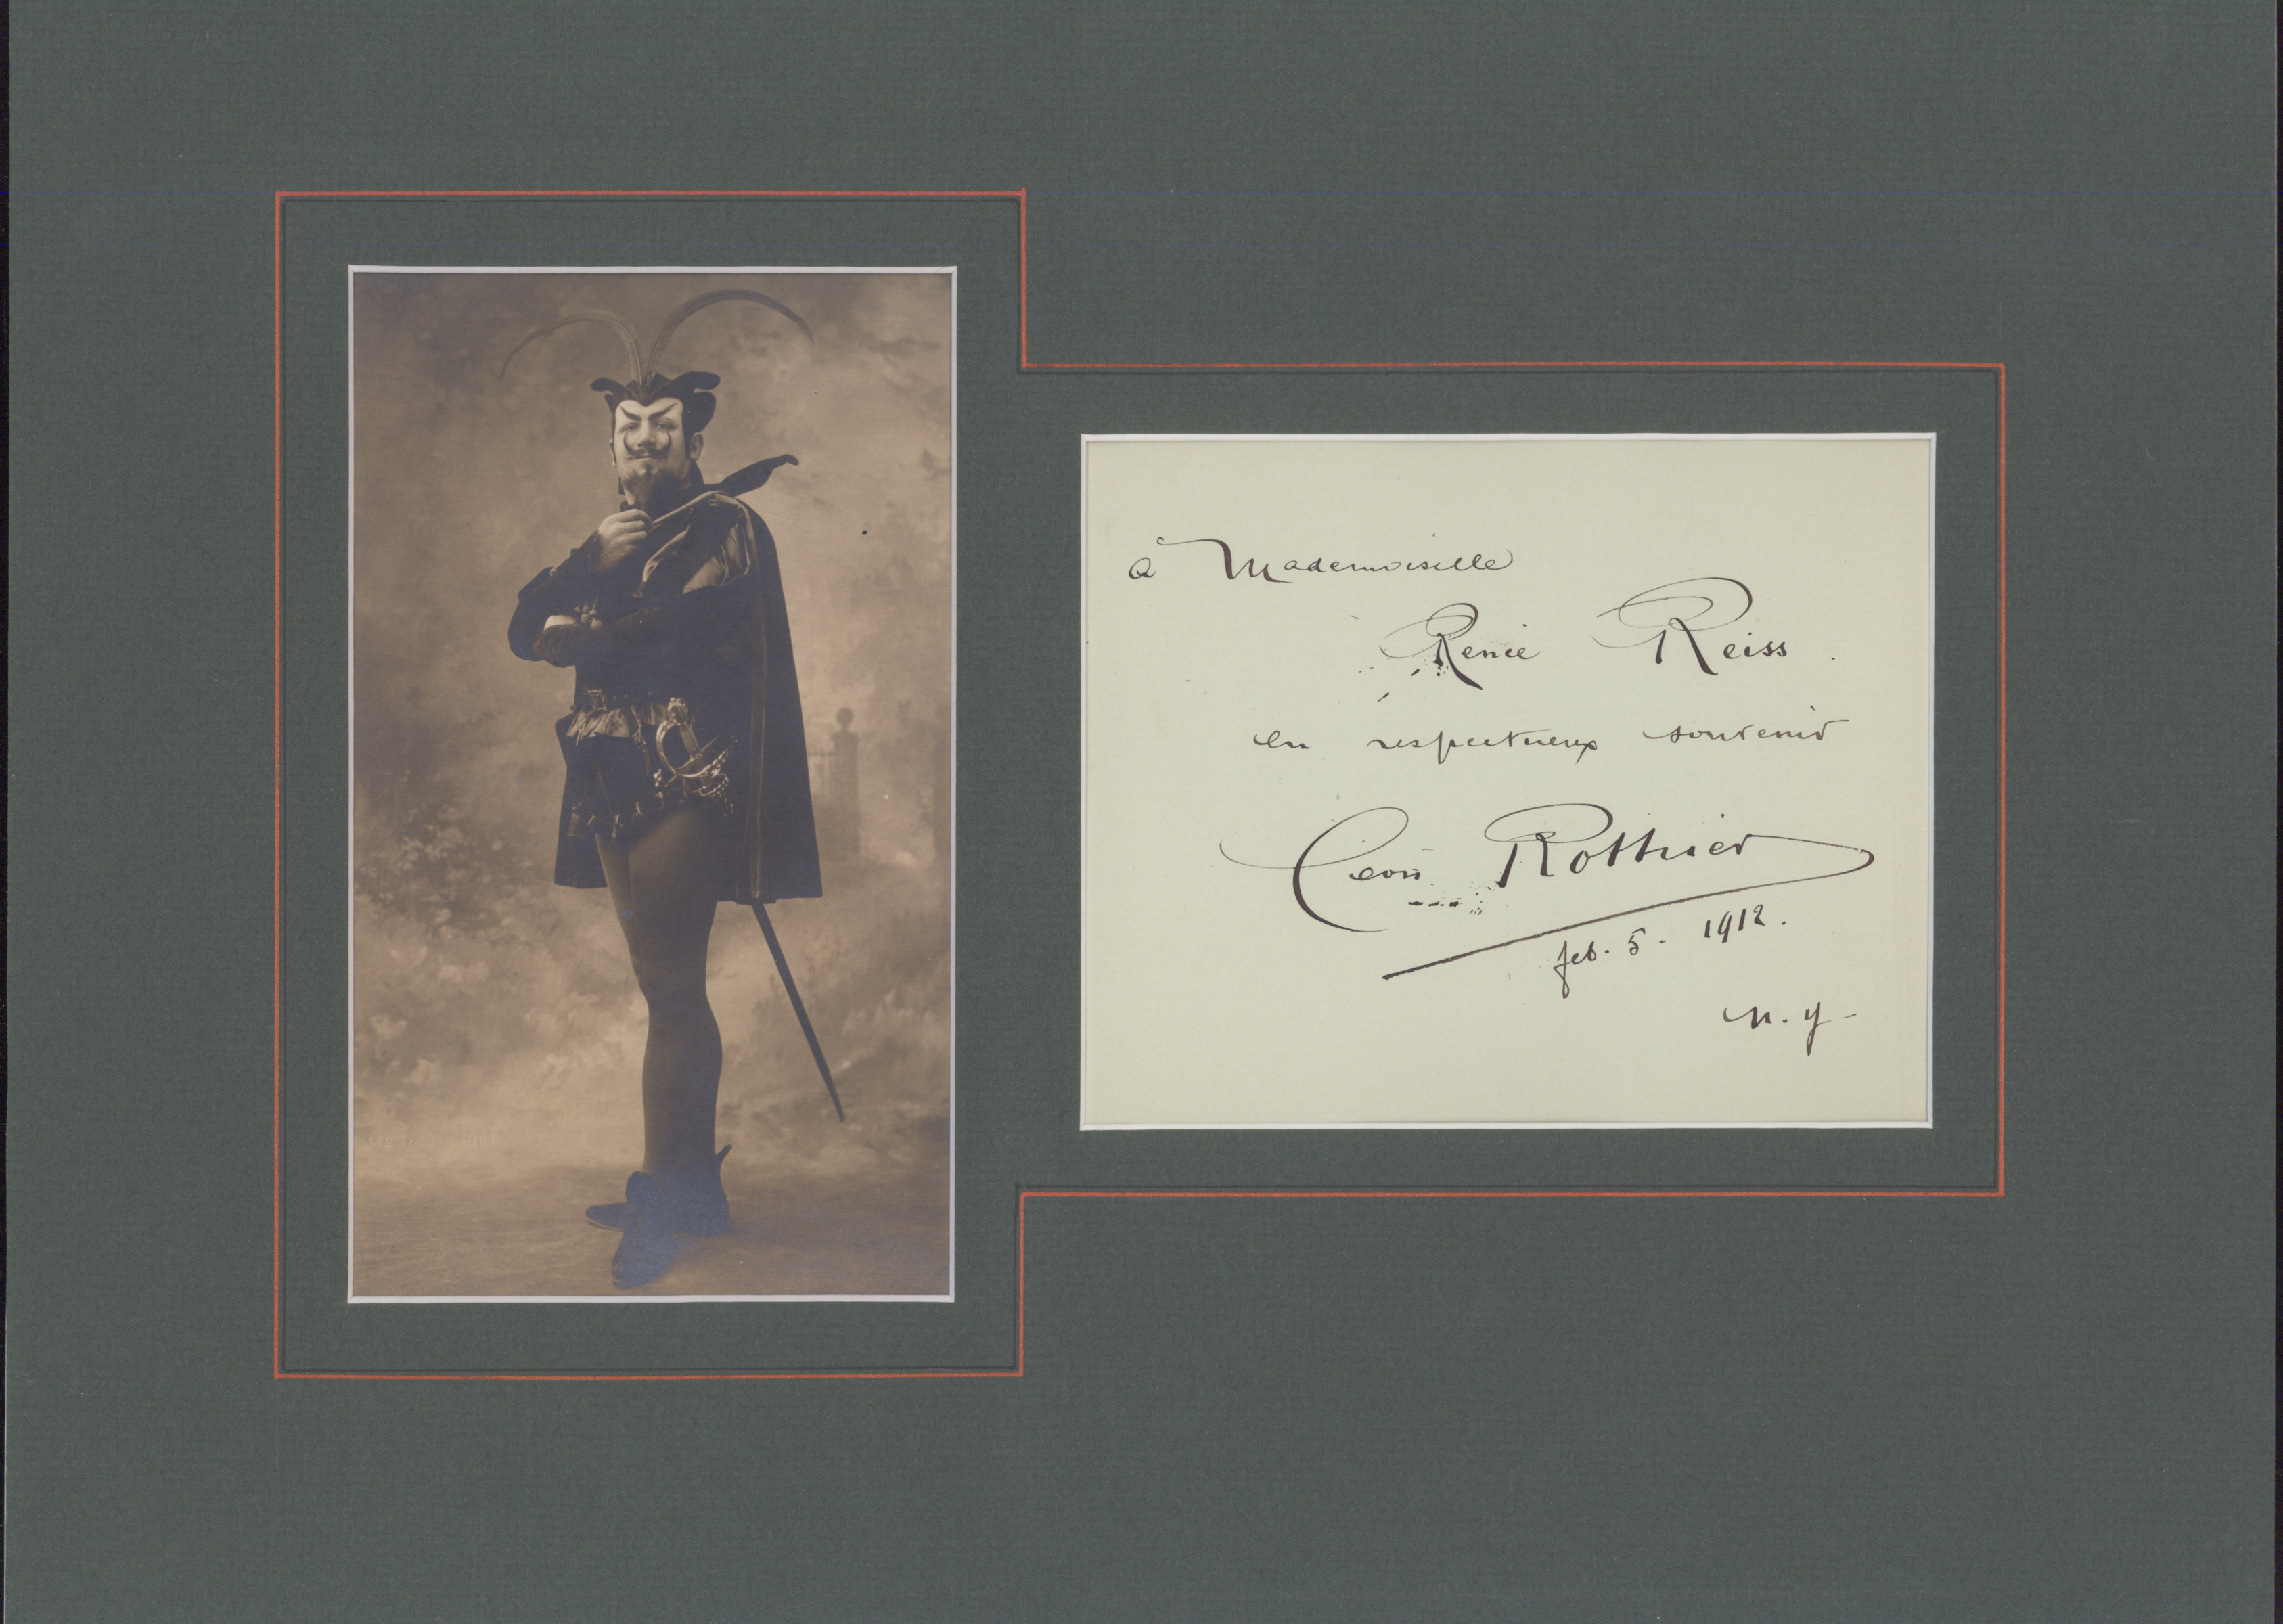 à Mademoiselle
Renée Reiss.
en respectueux souvenir
Léon Rothier
feb. 5 - 1912.
N. Y -